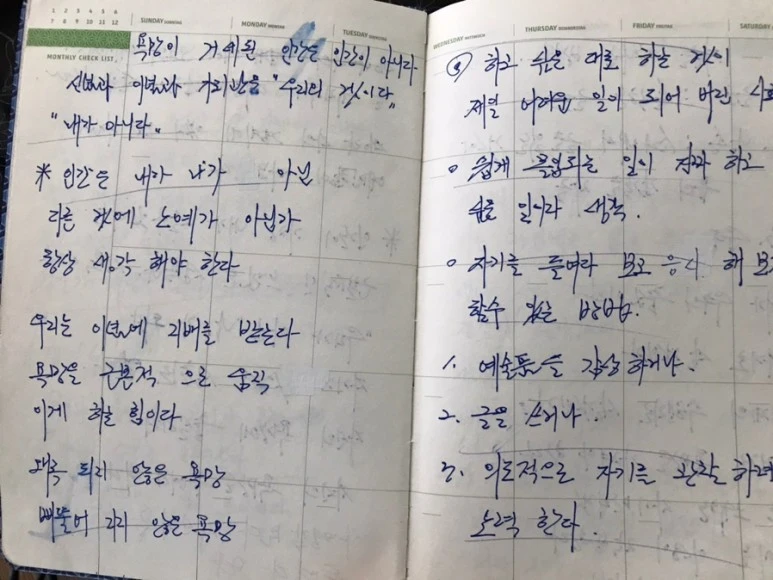 1 2 3 4 5 6
7 8 9 10 11 12
MONTHLY CHECK LIST
SUNDAY
MONDAY
TUESDAY
욕망이 거세된 인간은 인간이 아니다
신념과 이념과 가치관은 "우리의 것이다"
"내가 아니다"
* 인간은 내가 나가 아닌
다른 것에 노예가 아닌가
항상 생각 해야 한다
우리는 이념에 지배를 받는다
욕망은 근본적 으로 움직
이게 하는 힘이다
왜곡 되지 않은 욕망
삐뚤어 지지 않은 욕망
WEDNESDAY
THURSDAY
FRIDAY
SATURDAY
하고 싶은 대로 하는 것이
제일 어려운 일이 되어 버린 사회
쉽게 몰입되는 일이 진짜 하고
싶은 일이라 생각.
자기를 들여다 보고 응시 해 보
할수 있는 방법.
1. 예술품을 감상 하거나.
2. 글을 쓰거나.
3. 의도적으로 자기를 관찰 하려
노력 한다.